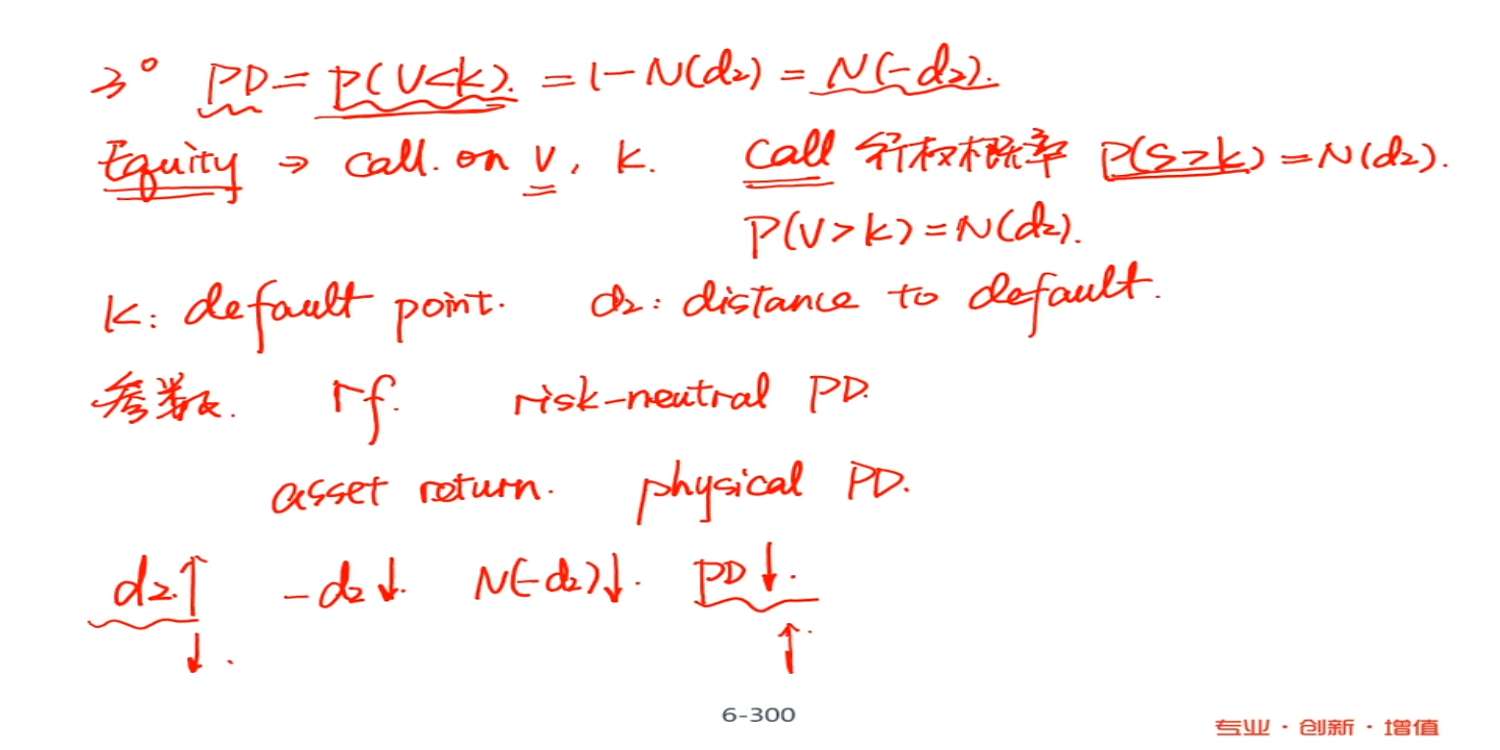 3° PD = P(V<K). = 1-N(d₂) = N(-d₂).
Equity → call. on V, K. Call 行权概率 P(S>K) = N(d₂).
P(V>K) = N(d₂).
K: default point. d₂: distance to default.
参数. rf. risk-neutral PD.
asset return. physical PD.
d₂.↑ -d₂↓. N(-d₂)↓. PD↓.
↓. ↑.
6-300
专业·创新·增值